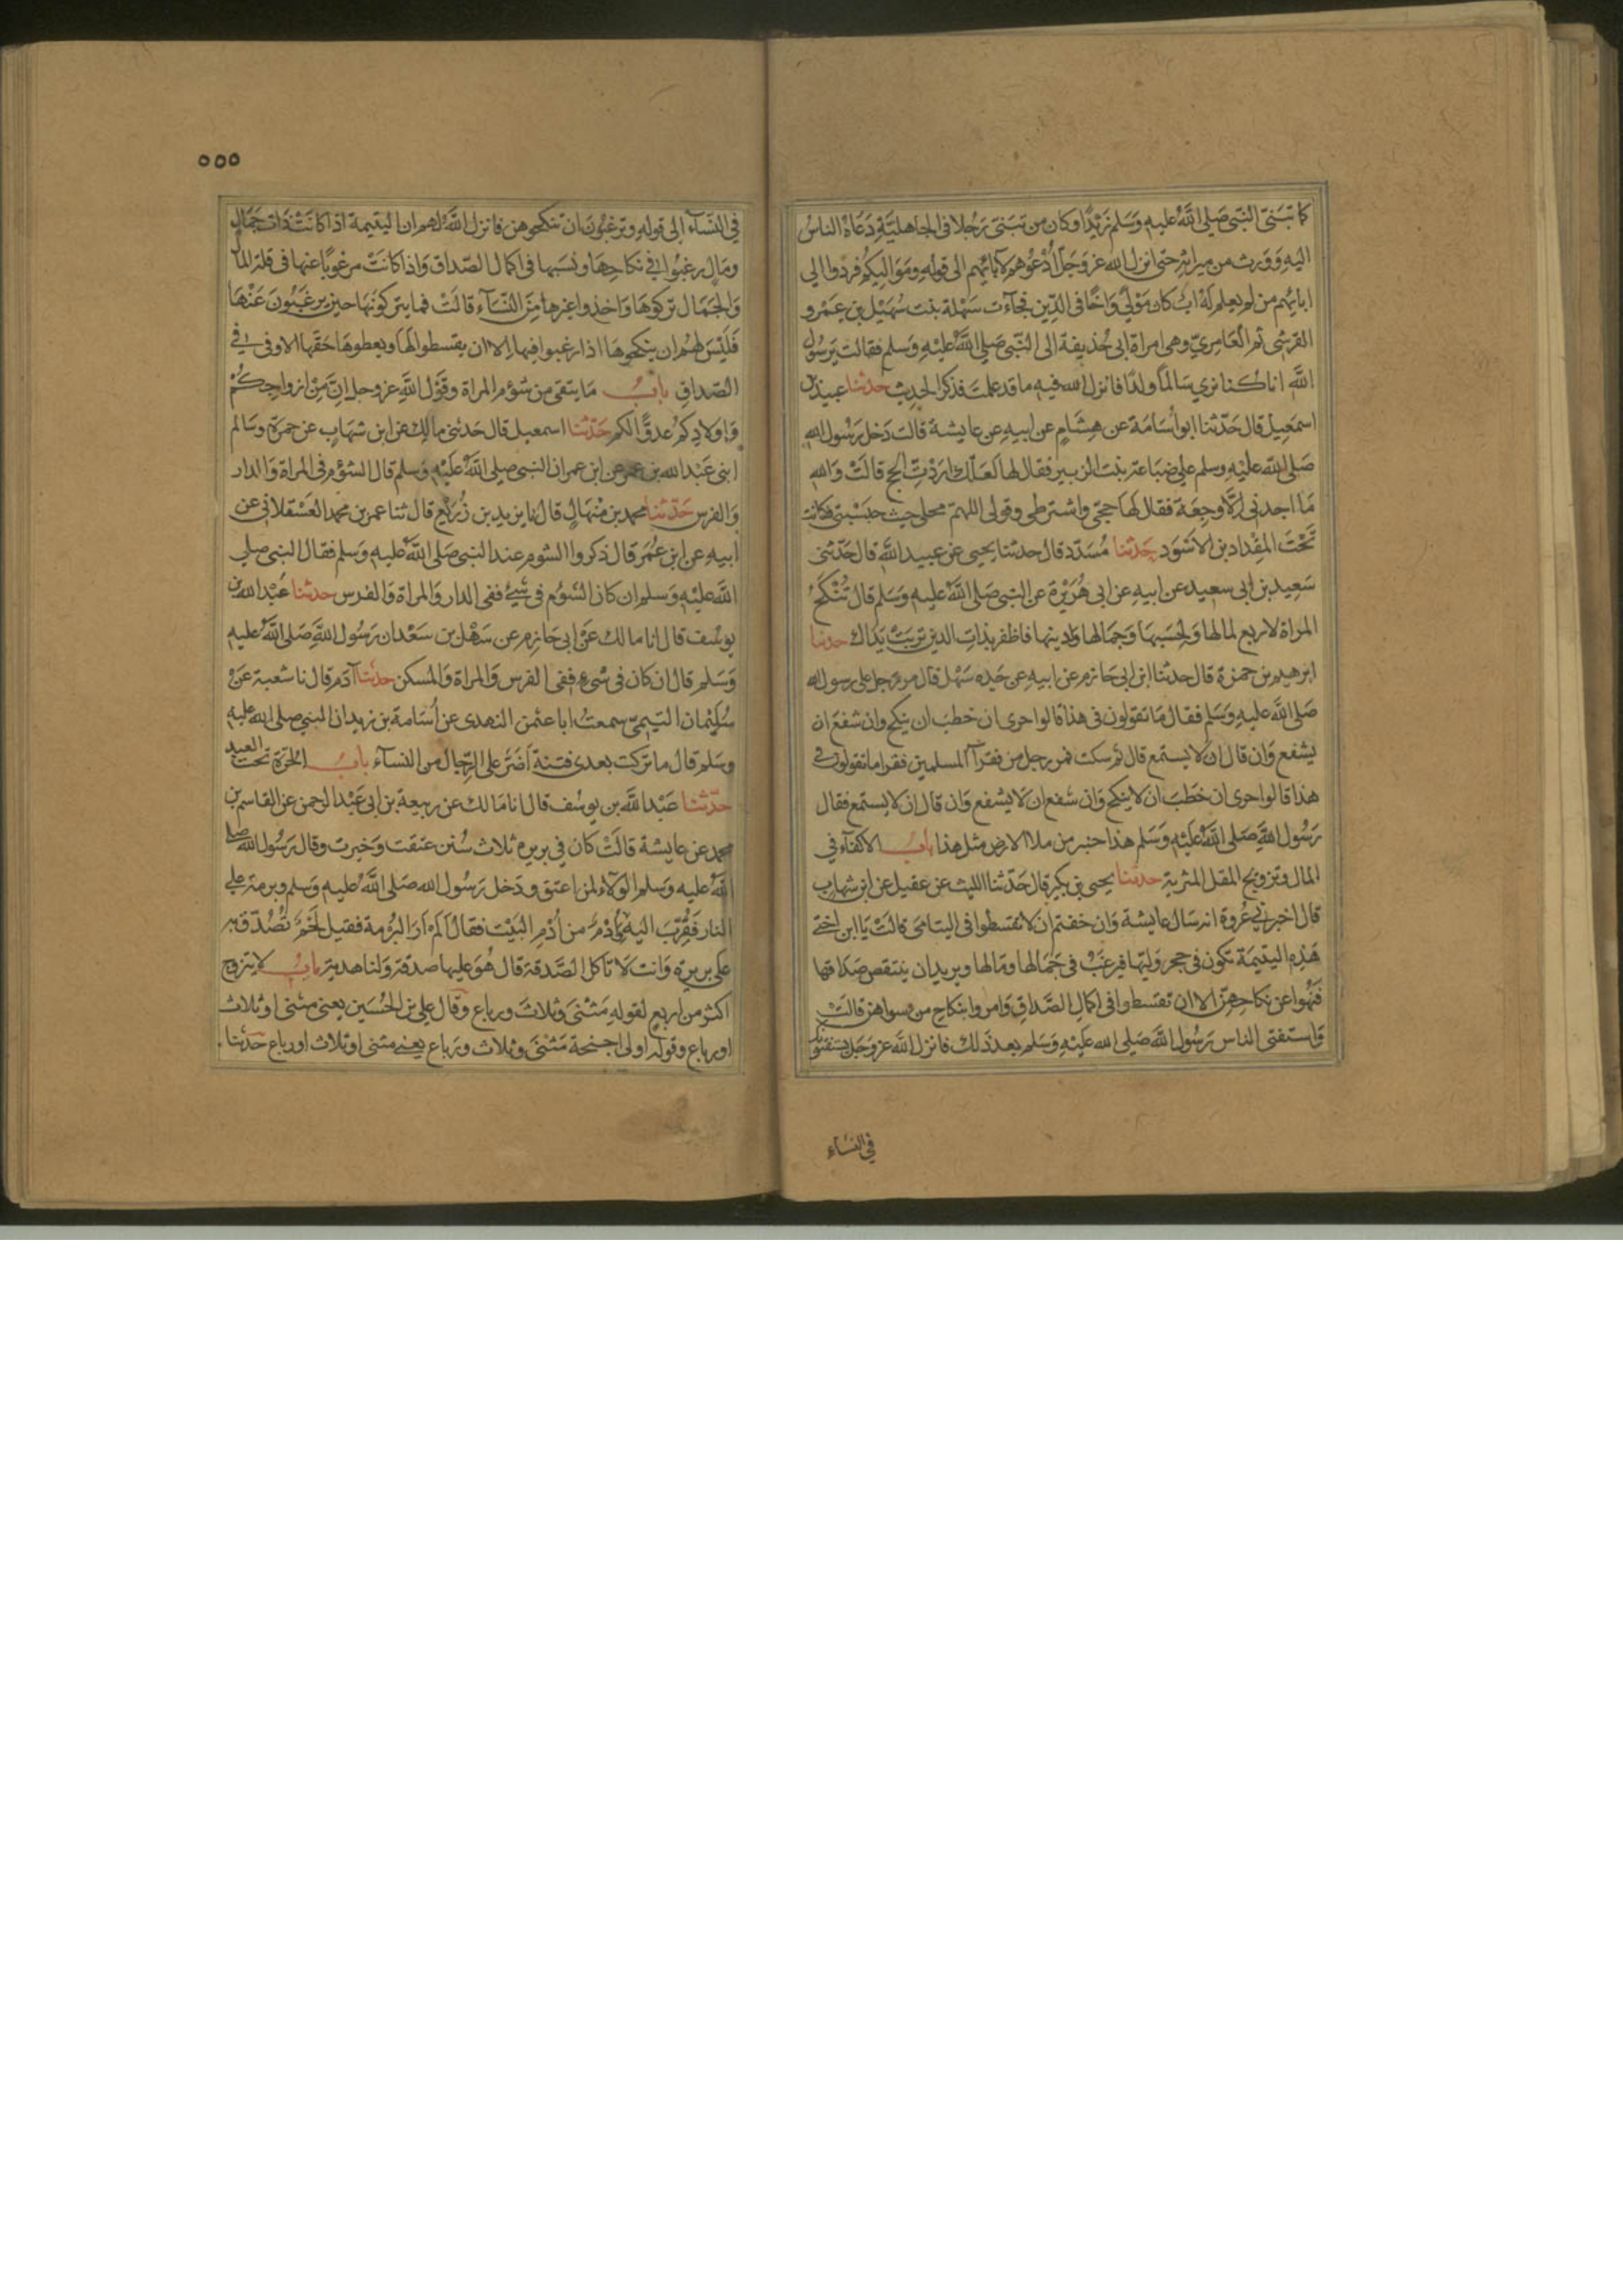 كما تبنى النبي صلى الله عليه وسلم زيدا وكان من تبنى رجلا في الجاهلية دعاه الناس
اليه وورث من ميراثه حتى انزل الله عز وجل ادعوهم لابائهم الى قوله ومواليكم فردوا الى
ابائهم من لم يعلم له اب كان مولى واخا في الدين فجاءت سهلة بنت سهيل بن عمرو
القرشي ثم العامري وهي امراة ابي حذيفة الى النبي صلى الله عليه وسلم فقالت يرسول
الله انا كنا نرى سالما ولدا فانزل الله فيه ما قد علمت فذكر الحديث حدثنا عبيد بن
اسمعيل قال حدثنا ابو اسامة عن هشام عن ابيه عن عايشة قالت دخل رسول الله
صلى الله عليه وسلم على ضباعة بنت الزبير فقال لها لعلك اردت الحج قالت والله
ما اجدني الا وجعة فقال لها حجي واشترطي وقولي اللهم محلي حيث حبستني وكانت
تحت المقداد بن الاسود حدثنا مسدد قال حدثنا يحيى عن عبيد الله قال حدثني
سعيد بن ابي سعيد عن ابيه عن ابي هريرة عن النبي صلى الله عليه وسلم قال تنكح
المراة لاربع لمالها ولحسبها وجمالها ودينها فاظفر بذات الدين تربت يداك حدثنا
ابرهيم بن حمزة قال حدثنا ابن ابي حازم عن ابيه عن جده سهل قال مر رجل على رسول الله
صلى الله عليه وسلم فقال ما تقولون في هذا قالوا حرى ان خطب ان ينكح وان شفع ان
يشفع وان قال ان لا يستمع قال ثم سكت فمر رجل من فقرآ المسلمين فقرا ما تقولون في
هذا قالوا حرى ان خطب ان لا ينكح وان شفع ان لا يشفع وان قال ان لا يستمع فقال
رسول الله صلى الله عليه وسلم هذا خير من ملا الارض مثل هذا باب الاكفآء في
المال وتزويج المقل المثرية حدثنا يحيى بن بكير قال حدثنا الليث عن عقيل عن ابن شهاب
قال اخبرني عروة انه سال عايشة وان خفتم ان لا تقسطوا في اليتامى قالت يا ابن اختي
هذه اليتيمة تكون في حجر وليها فيرغب في جمالها ومالها ويريد ان ينتقص صداقها
فنهوا عن نكاحهن الا ان تقسطوا في اكمال الصداق وامروا بنكاح من سواهن قالت
واستفتى الناس رسول الله صلى الله عليه وسلم بعد ذلك فانزل الله عز وجل يستفتونك
في النساء
٥٥٥
في النسآء الى قوله وترغبون ان تنكحوهن فانزل الله لهم ان اليتيمة اذا كانت ذات جمال
ومال رغبوا في نكاحها ونسبها في اكمال الصداق واذا كانت مرغوبا عنها في قلة المال
والجمال تركوها واخذوا غيرها من النسآء قالت فما يتركونها حين يرغبون عنها
فليس لهم ان ينكحوها اذا رغبوا فيها الا ان يقسطوا لها ويعطوها حقها الاوفى في
الصداق باب ما يتقى من شؤم المراة وقول الله عز وجل ان من ازواجكم
واولادكم عدوا لكم حدثنا اسمعيل قال حدثني مالك عن ابن شهاب عن حمزة وسالم
ابني عبد الله بن عمر عن ابن عمر ان النبي صلى الله عليه وسلم قال الشؤم في المراة والدار
والفرس حدثنا محمد بن منهال قال نا يزيد بن زريع قال ثنا عمر بن محمد العسقلاني عن
ابيه عن ابن عمر قال ذكروا الشوم عند النبي صلى الله عليه وسلم فقال النبي صلى
الله عليه وسلم ان كان الشوم في شيء ففي الدار والمراة والفرس حدثنا عبد الله بن
يوسف قال انا مالك عن ابي حازم عن سهل بن سعد ان رسول الله صلى الله عليه
وسلم قال ان كان في شيء ففي الفرس والمراة والمسكن حدثنا آدم قال نا شعبة عن
سليمان التيمي سمعت ابا عثمن النهدي عن اسامة بن زيد ان النبي صلى الله عليه
وسلم قال ما تركت بعدي فتنة اضر على الرجال من النسآء باب الحرة تحت العبد
حدثنا عبد الله بن يوسف قال انا مالك عن ربيعة بن ابي عبد الرحمن عن القاسم بن
محمد عن عايشة قالت كان في بريرة ثلاث سنن عتقت وخيرت وقال رسول الله صلى
الله عليه وسلم الولاء لمن اعتق ودخل رسول الله صلى الله عليه وسلم وبرمة على
النار فقرب اليه وادم من ادم البيت فقال الم ار البرمة فقيل لحم تصدق به
على بريرة وانت لا تاكل الصدقة قال هو عليها صدقة ولنا هدية باب لا يتزوج
اكثر من اربع لقوله مثنى وثلاث ورباع وقال علي بن الحسين يعني مثنى او ثلاث
او رباع وقوله اولى اجنحة مثنى وثلاث ورباع يعني مثنى او ثلاث او رباع حدثنا